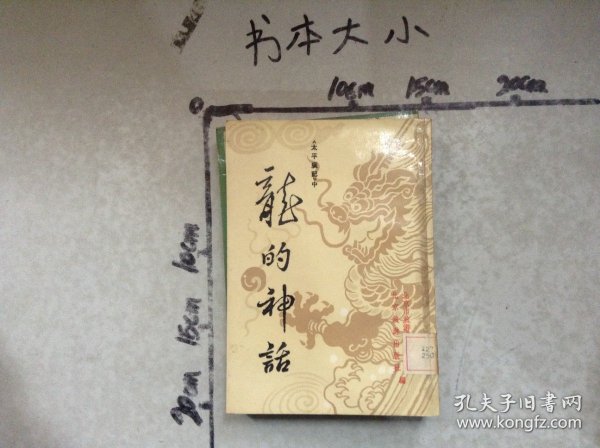 书本大小
0
10cm
15cm
20cm
10cm
15cm
20cm
《太平广記》中
龍的神話
編
427
250
孔夫子旧书网
www.kongfz.com